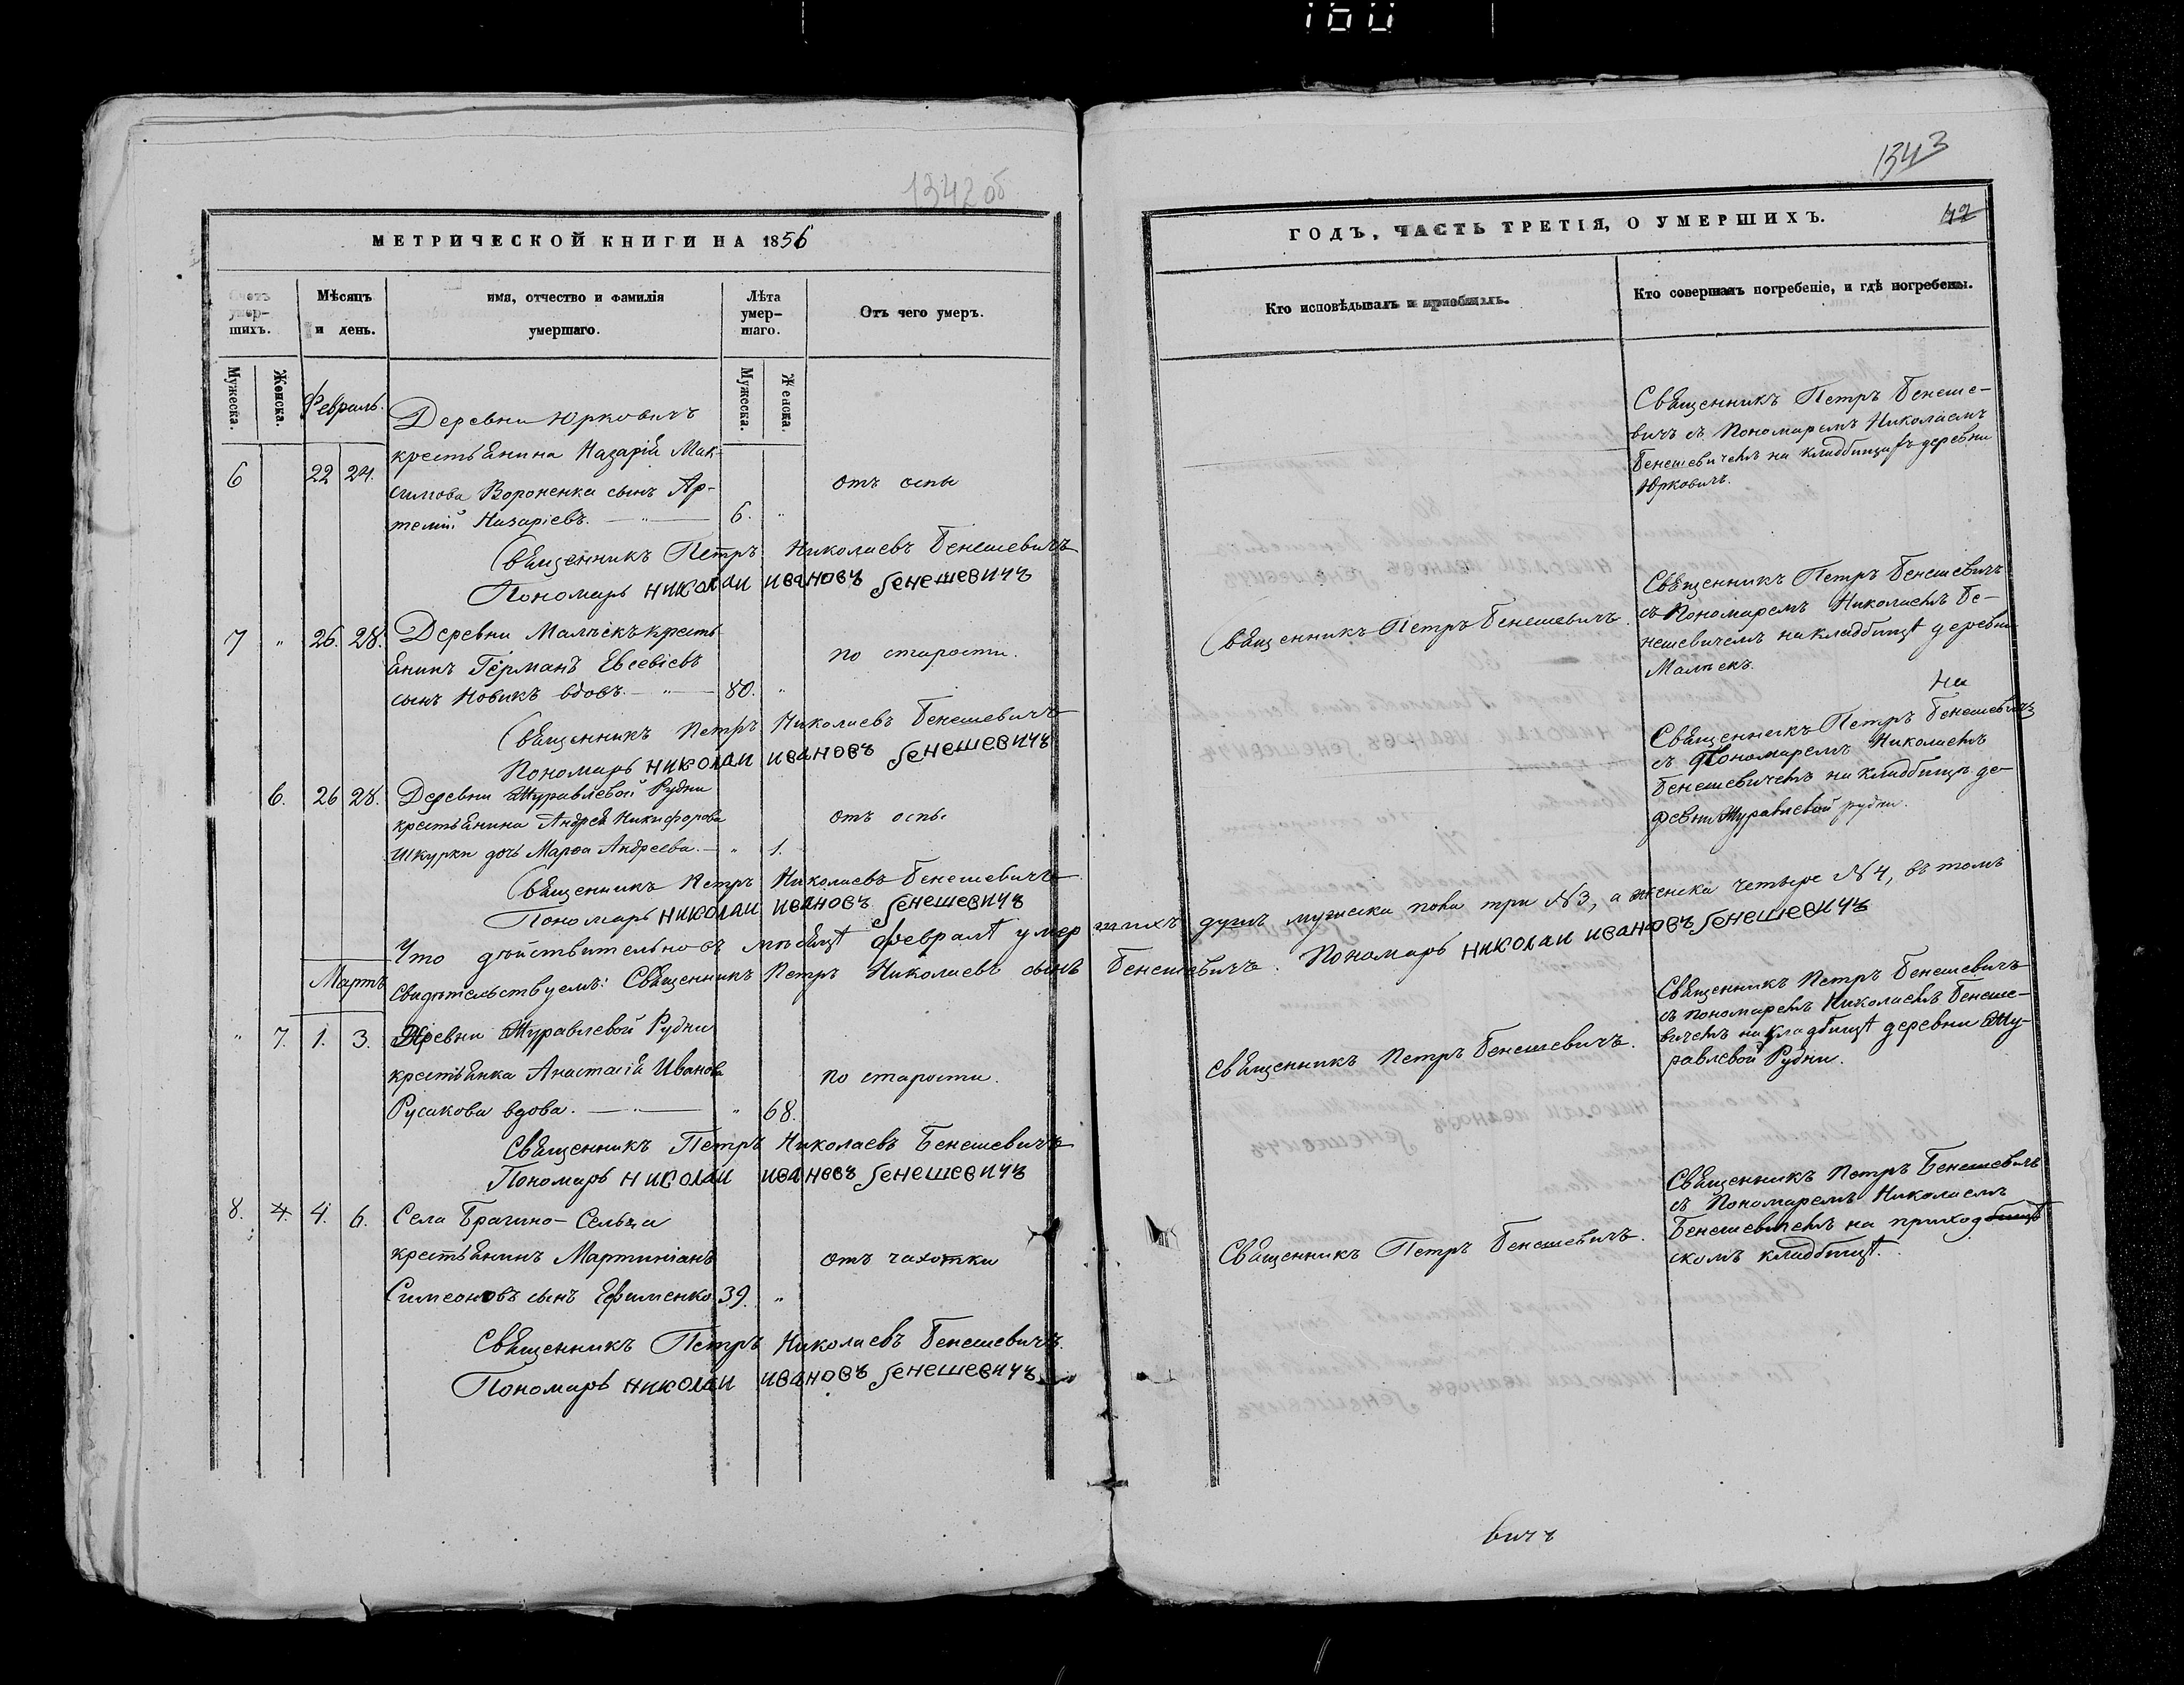 160
1342 об
МЕТРИЧЕСКОЙ КНИГИ НА 1856
Счетъ умер-шихъ.
Мѣсяцъ и день.
имя, отчество и фамилія умершаго.
Лѣта умер-шаго.
Отъ чего умеръ.
Мужеска.
Женска.
Мужеска.
Женска.
Февраль.
Деревни Юрковичъ
крестьянина Назарія Мак-
6 22 24. симова Вороненка сынъ Ар- отъ оспы
темій Назаріевъ. — " — 6. "
Священникъ Петръ Николаевъ Бенешевичъ
Пономарь Николаи Ивановъ Бенешевичъ
7 " 26. 28. Деревни Малѣекъ кресть-
янинъ Германъ Евсевіевъ по старости.
сынъ Новикъ вдовъ. — " — 80. "
Священникъ Петръ Николаевъ Бенешевичъ
Пономарь Николаи Ивановъ Бенешевичъ
6. 26 28. Деревни Журавлевой Рудни
крестьянина Андрея Никифорова отъ оспы
Шкурки дочь Марѳа Андреева. — " 1.
Священникъ Петръ Николаевъ Бенешевичъ
Пономарь Николаи Ивановъ Бенешевичъ
Что дѣйствительно въ мѣсяцѣ февралѣ умер
Мартъ
Свидѣтельствуемъ: Священникъ Петръ Николаевъ сынъ
" 7. 1. 3. Деревни Журавлевой Рудни
крестьянка Анастасія Иванова по старости.
Русакова вдова. — " — " 68.
Священникъ Петръ Николаевъ Бенешевичъ
Пономарь Николаи Ивановъ Бенешевичъ
8. 4. 6. Села Брагино-Сельца
крестьянинъ Мартиніанъ отъ чахотки
Симеоновъ сынъ Ефименко 39. "
Священникъ Петръ Николаевъ Бенешевичъ
Пономарь Николаи Ивановъ Бенешевичъ
1343
ГОДЪ, ЧАСТЬ ТРЕТІЯ, О УМЕРШИХЪ.
42
Кто исповѣдывалъ и пріобщалъ.
Кто совершалъ погребеніе, и гдѣ погребены.
Священникъ Петръ Бенеше-
вичъ съ Пономаремъ Николаемъ
Бенешевичемъ на кладбищѣ деревни
Юрковичъ.
Священникъ Петръ Бенешевичъ.
Священникъ Петръ Бенешевичъ
съ Пономаремъ Николаемъ Бе-
нешевичемъ на кладбищѣ деревни
Малѣекъ.
На
Священникъ Петръ Бенешевичъ
съ Пономаремъ Николаемъ
Бенешевичемъ на кладбищѣ де-
ревни Журавлевой рудни.
шихъ душъ мужеска пола три №3, а женска четыре №4, въ томъ
Бенешевичъ. Пономарь Николаи Ивановъ Бенешевичъ
Священникъ Петръ Бенешевичъ.
Священникъ Петръ Бенешевичъ
съ пономаремъ Николаемъ Бенеше-
вичемъ на кладбищѣ деревни Жу-
равлевой Рудни.
Священникъ Петръ Бенешевичъ.
Священникъ Петръ Бенешевичъ
съ Пономаремъ Николаемъ
Бенешевичемъ на приход
скомъ кладбищѣ.
вичъ